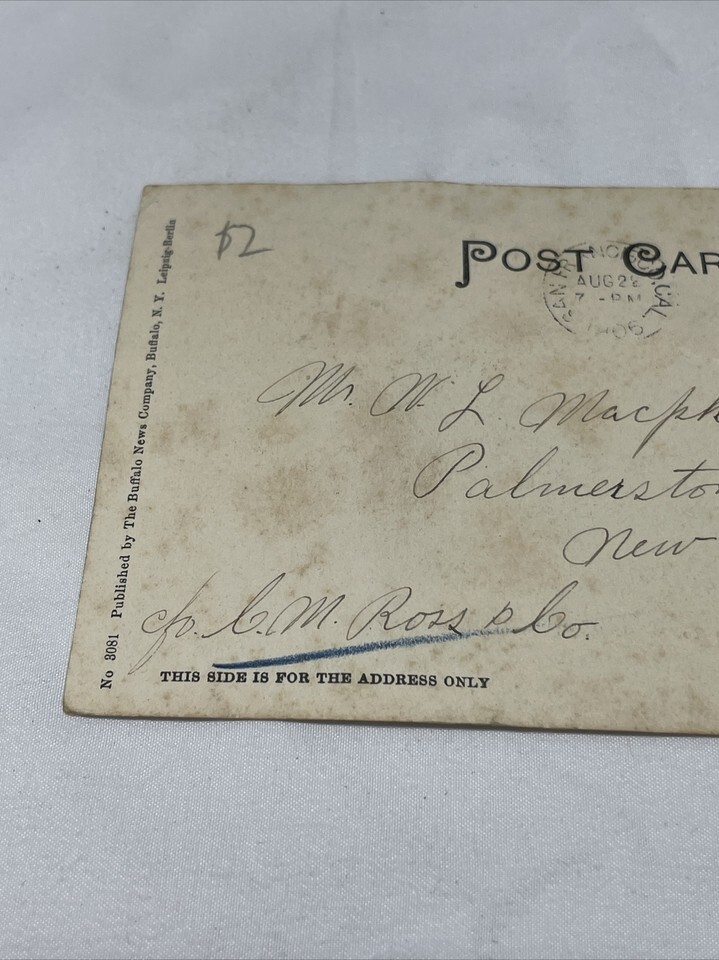 $2
POST CAR
SAN FRANCISCO, CAL
AUG 22
7 - PM
1906
Mr. W. L. Macph
Palmersto
New
c/o. C. M. Ross & Co.
THIS SIDE IS FOR THE ADDRESS ONLY
No 3081 Published by The Buffalo News Company, Buffalo, N. Y. Leipzig-Berlin